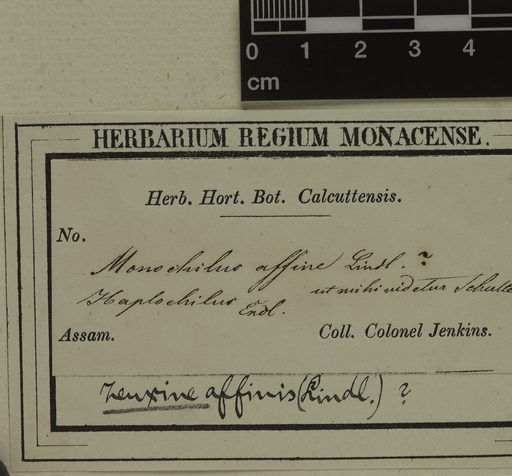 0 1 2 3 4
cm
HERBARIUM REGIUM MONACENSE.
Herb. Hort. Bot. Calcuttensis.
No.
Monochilus affine Lindl. ?
Haplochilus Endl. ut mihi videtur
Assam. Coll. Colonel Jenkins.
Zeuxine affinis (Lindl.) ?